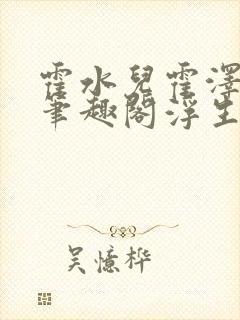 霍水兒霍澤
筆趣閣浮生
吴憶桦